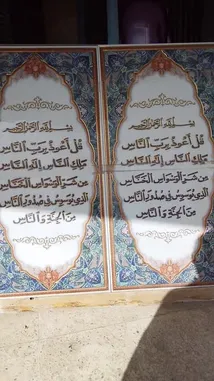 بسم الله الرحمن الرحيم
قل أعوذ برب الناس
ملك الناس إله الناس
من شر الوسواس الخناس
الذي يوسوس في صدور الناس
من الجنة والناس
بسم الله الرحمن الرحيم
قل أعوذ برب الناس
ملك الناس إله الناس
من شر الوسواس الخناس
الذي يوسوس في صدور الناس
من الجنة والناس